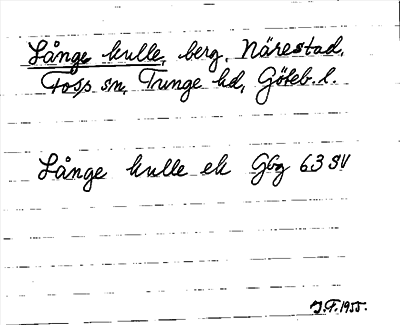 Långe kulle, berg. Närestad,
Foss sn, Tunge hd, Göteb. l.
Långe kulle ek Gbg 63 SV
J.F. 1955.